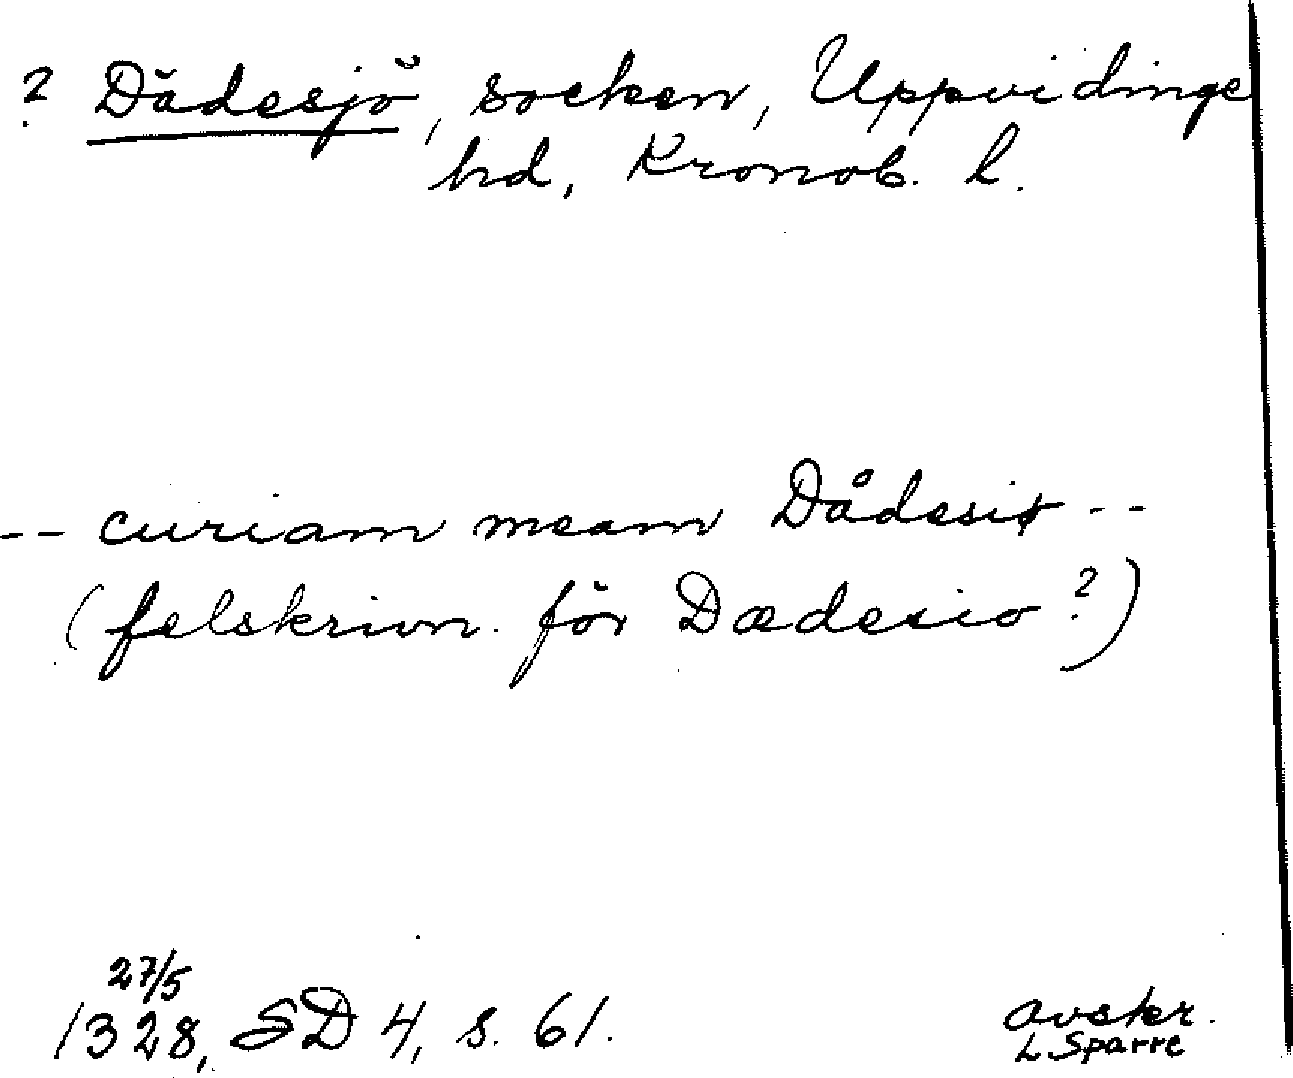 ? Dädesjö, socken, Uppvidinge
hd, Kronob. l.
-- curiam meam Dådesiø --
(felskrivn. för Dædesio?)
27/5
1328, SD 4, s. 61.
avskr.
L Sparre